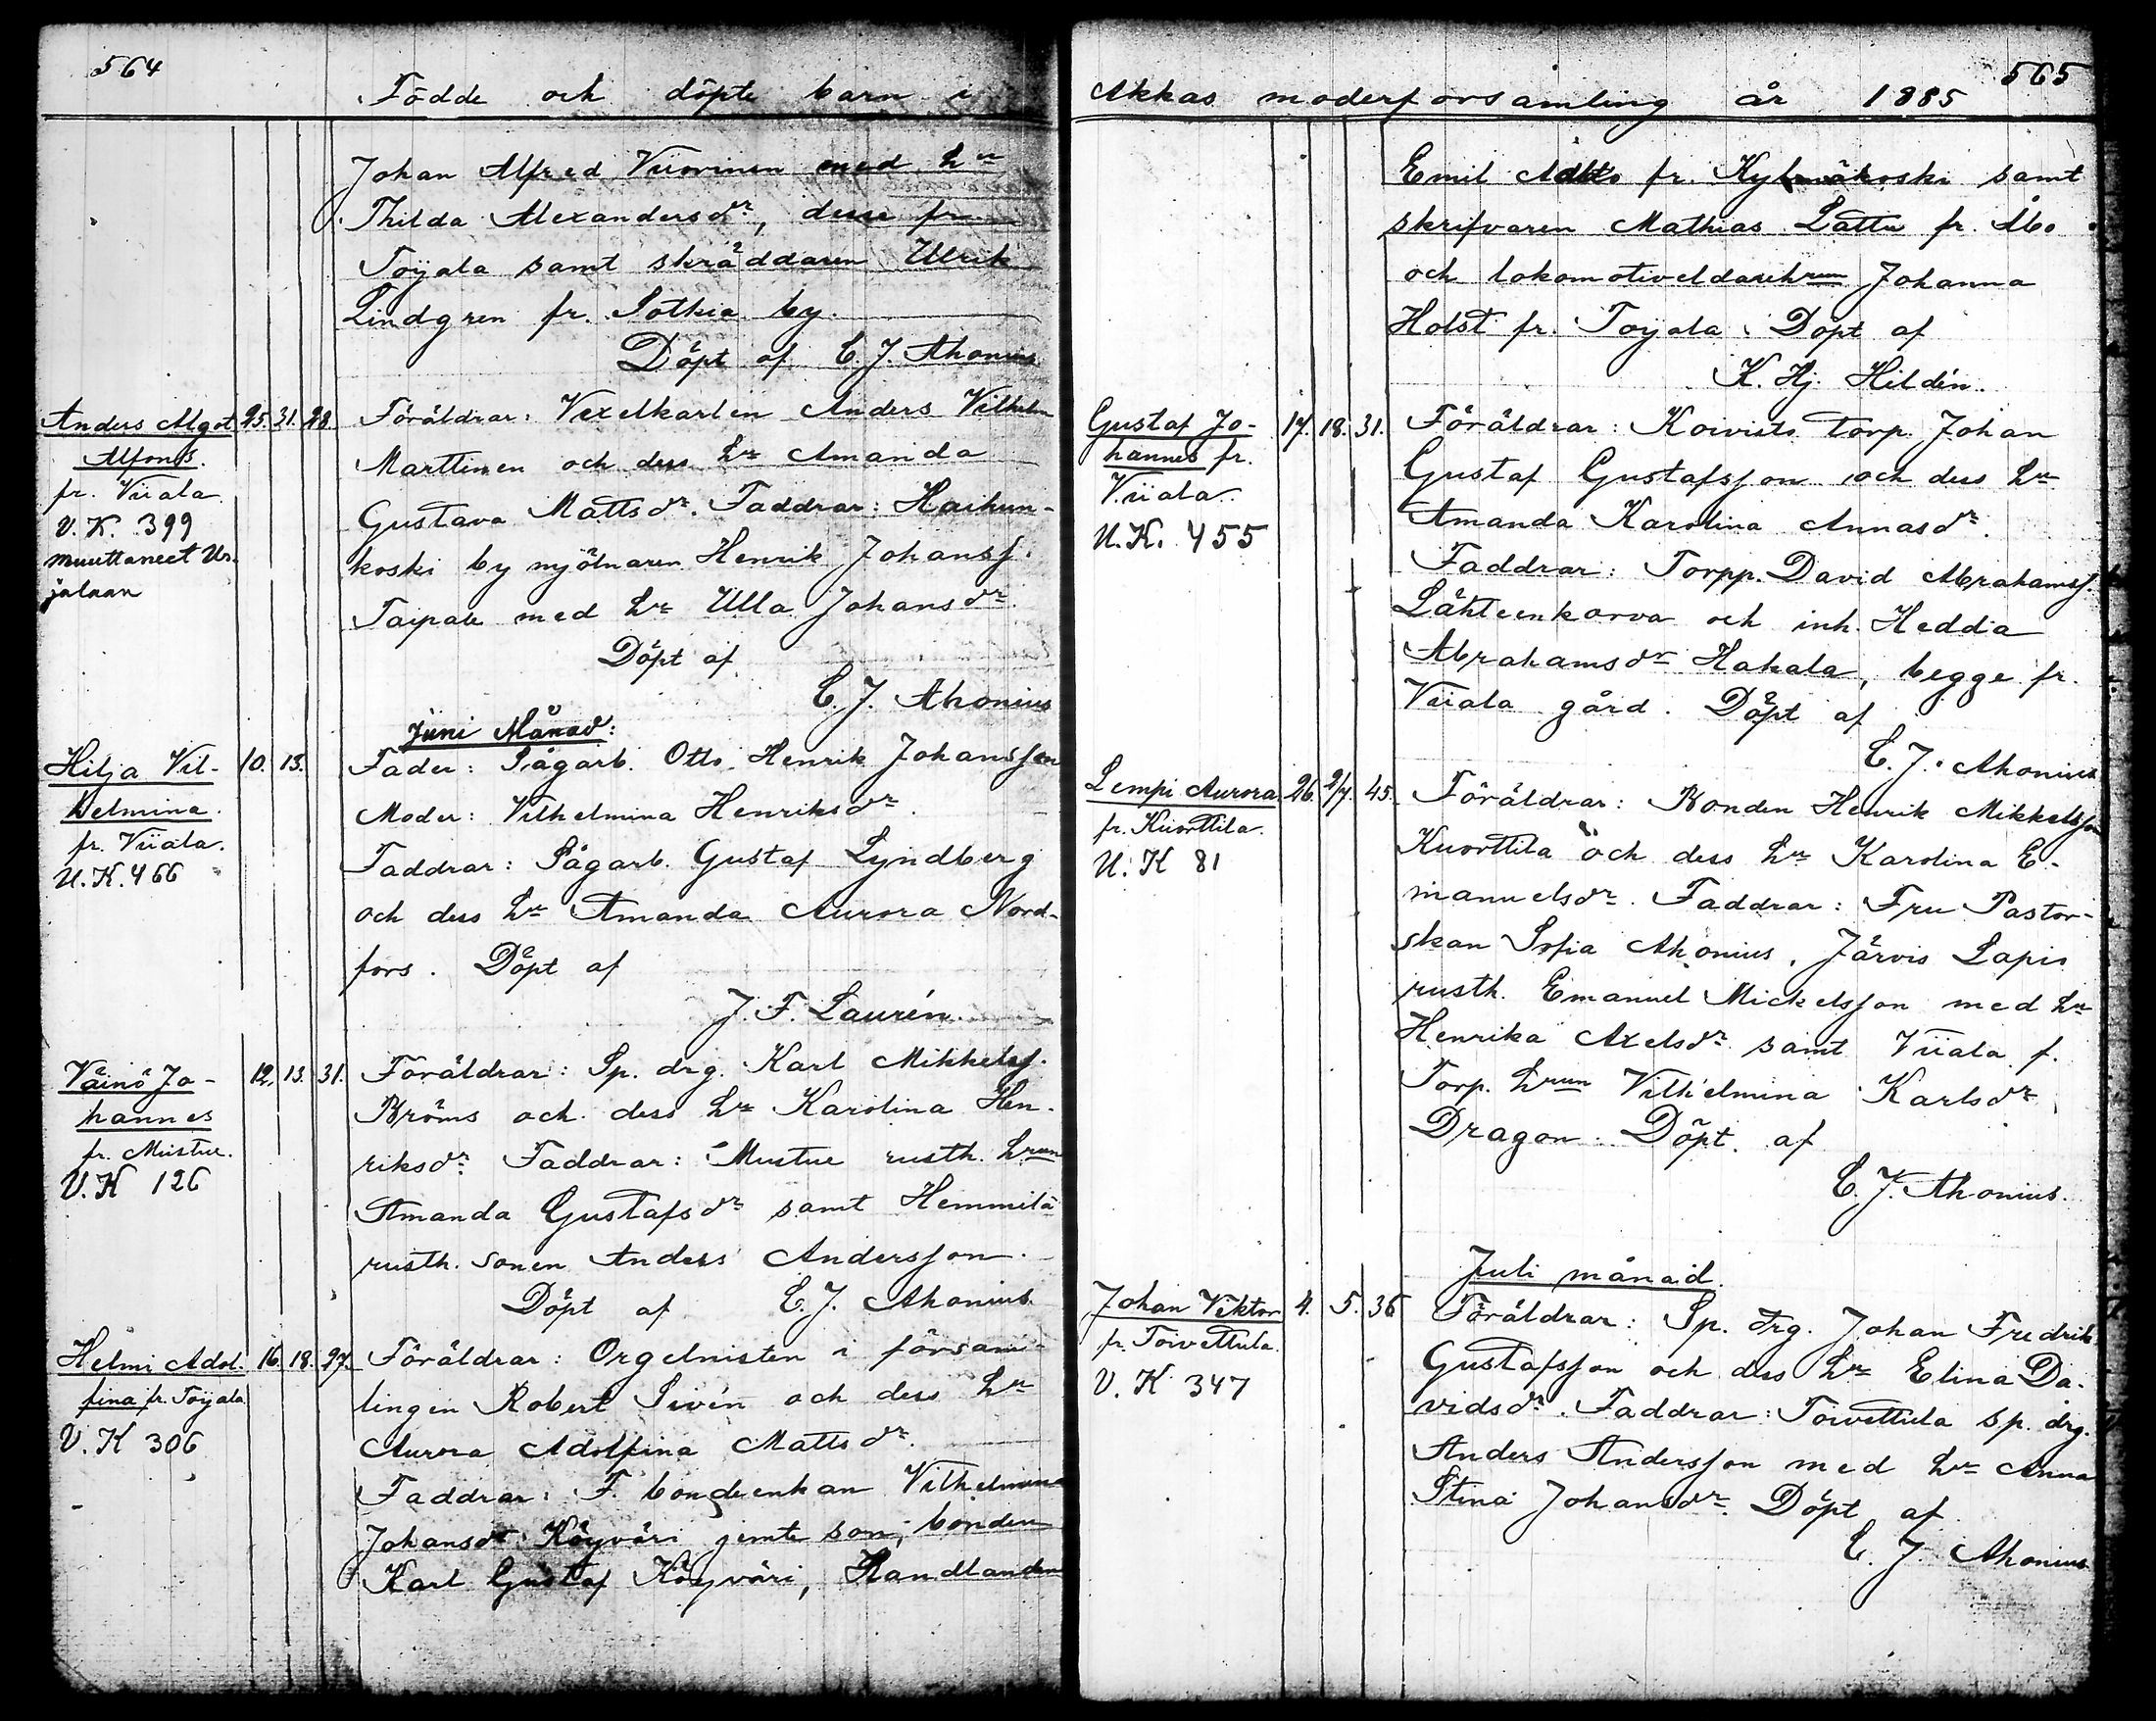 564
Födde och döpte barn i
Johan Alfred Viiorinen med hu
Thilda Alexandersdr, desse fr.
Toijala samt skräddaren Ulrik
Lindgren fr. Sotkia by.
Döpt af E. J. Ahonius
Anders Algot 25. 31. 28.
Alfons.
fr. Viiala.
U. K. 399
muuttaneet Ur-
jalaan
Föräldrar: Vexelkarlen Anders Vilhelm
Marttinen och dess hu Amanda
Gustava Mattsdr. Faddrar: Haihun-
koski by mjölnaren Henrik Johanss.
Taipale med hu Ulla Johansdr.
Döpt af
E. J. Ahonius
Juni Månad:
Hilja Vil- 10. 13.
helmina.
fr. Viiala.
U. K. 466
Fader: Sågarb. Otto Henrik Johansson
Moder: Vilhelmina Henriksdr.
Faddrar: Sågarb. Gustaf Lyndberg
och dess hu Amanda Aurora Nord-
fors. Döpt af
J. F. Laurén.
Väinö Jo- 12. 13. 31.
hannes
fr. Mustue.
U. K 126
Föräldrar: Sp. drg. Karl Mikkelss.
Bröms och dess hu Karolina Hen-
riksdr. Faddrar: Mustue rusth. hrun
Amanda Gustafsdr samt Hemmilä
rusth. sonen Anders Andersson.
Döpt af E. J. Ahonius.
Helmi Adol- 16. 18. 27.
fina fr. Toijala
U. K 306
Föräldrar: Orgelnisten i försam-
lingen Robert Sivén och dess hu
Aurora Adolfina Mattsdr.
Faddrar: F. bondeenkan Vilhelmina
Johansdr Köyväri jemte son, bonden
Karl Gustaf Köyväri, Handlanden
565
Akkas moderforsamling år 1885
Emil Adlto fr. Kylmäkoski samt
skrifvaren Mathias Lattu fr. Åbo
och lokomotiveldarehrun Johanna
Holst fr. Toijala. Döpt af
K. Hj. Hildén.
Gustaf Jo- 17. 18. 31.
hannes fr.
Viiala.
U. K. 455
Föräldrar: Koivisto torp. Johan
Gustaf Gustafsson och dess hu
Amanda Karolina Annasdr.
Faddrar: Torpp. David Abrahamss.
Lähteenkorva och inh. Hedda
Abrahamsdr Hakala, begge fr.
Viiala gård. Döpt af
E. J. Ahonius
Lempi Aurora. 26. 2/7. 45.
fr. Kuorttila.
U. K 81
Föräldrar: Bonden Henrik Mikkelsson
Kuorttila och dess hu Karolina E-
manuelsdr. Faddrar: Fru Pastor-
skan Sofia Ahonius, Järvis Lapis
rusth. Emanuel Mickelsson med hu
Henrika Axelsdr samt Viiala f.
Torp. hrun Vilhelmina Karlsdr
Dragon. Döpt af
E. J. Ahonius.
Juli månad.
Johan Viktor 4. 5. 36
fr. Toivettula.
U. K 347
Föräldrar: Sp. drg. Johan Fredrik
Gustafsson och dess hu Elina Da-
vidsdr. Faddrar: Toivettula sp. drg.
Anders Andersson med hu Anna
Stina Johansdr. Döpt af
E. J. Ahonius